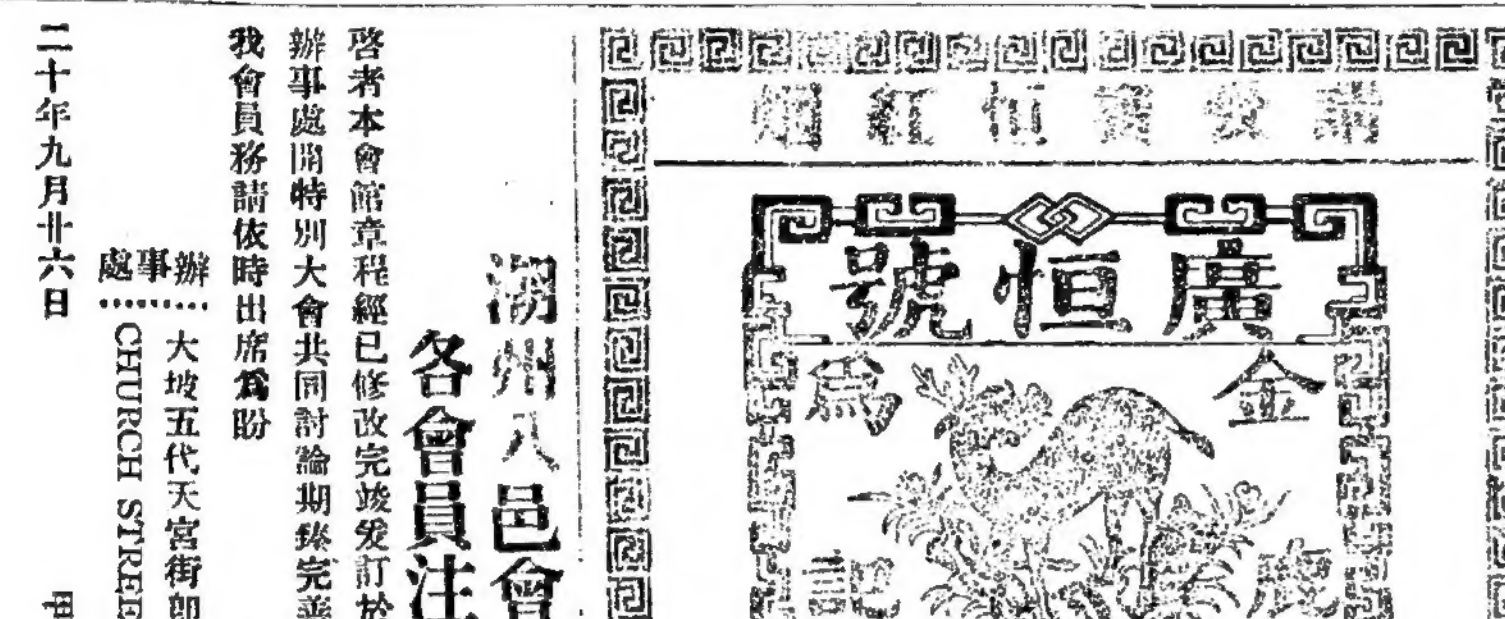 廣恒號
金
爲
記
潮州八邑會
各會員注
啓者本會館章程經已修改完竣爰訂於
辦事處開特別大會共同討論期臻完善
我會員務請依時出席爲盼
辦事處
大坡五代天宮街卽
CHURCH STREE
二十年九月廿六日